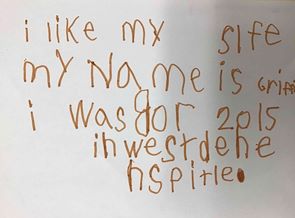 i like my slfe
my Name is Griff
i was bor 2015
in westdene
hspitle.